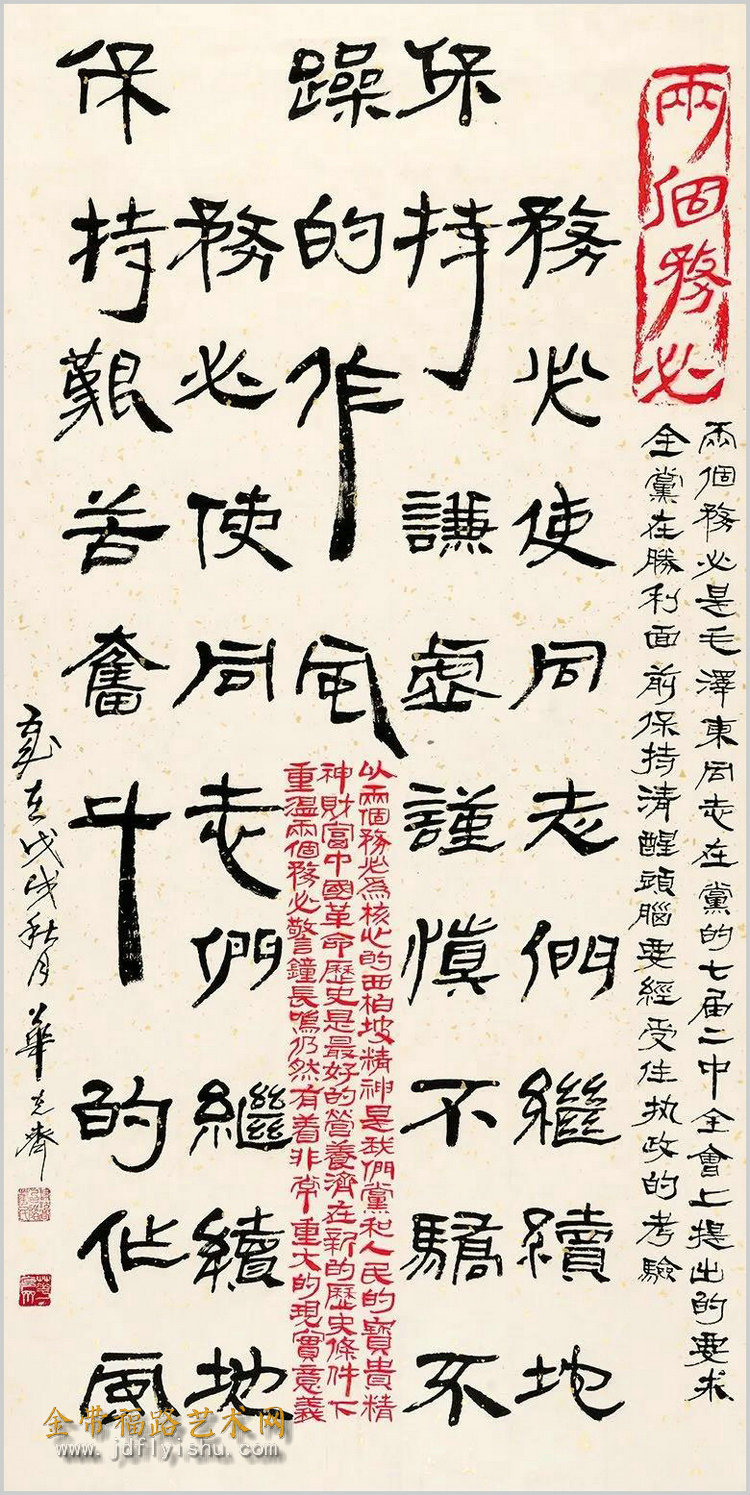 兩個務必
兩個務必是毛澤東同志在黨的七届二中全會上提出的要求
全黨在勝利面前保持清醒頭腦要經受住执政的考驗
務必使同志們繼續地
保持謙虛謹慎不驕不
躁的作風
以兩個務必爲核心的西柏坡精神是我們黨和人民的寶貴精
神財富中國革命歷史是最好的營養濟在新的歷史條件下
重溫兩個務必警鐘長鳴仍然有着非常重大的現實意義
務必使同志們繼續地
保持艱苦奮斗的作風
歲在戊戌秋月 華克齊
金带福路艺术网
www.jdflyishu.com